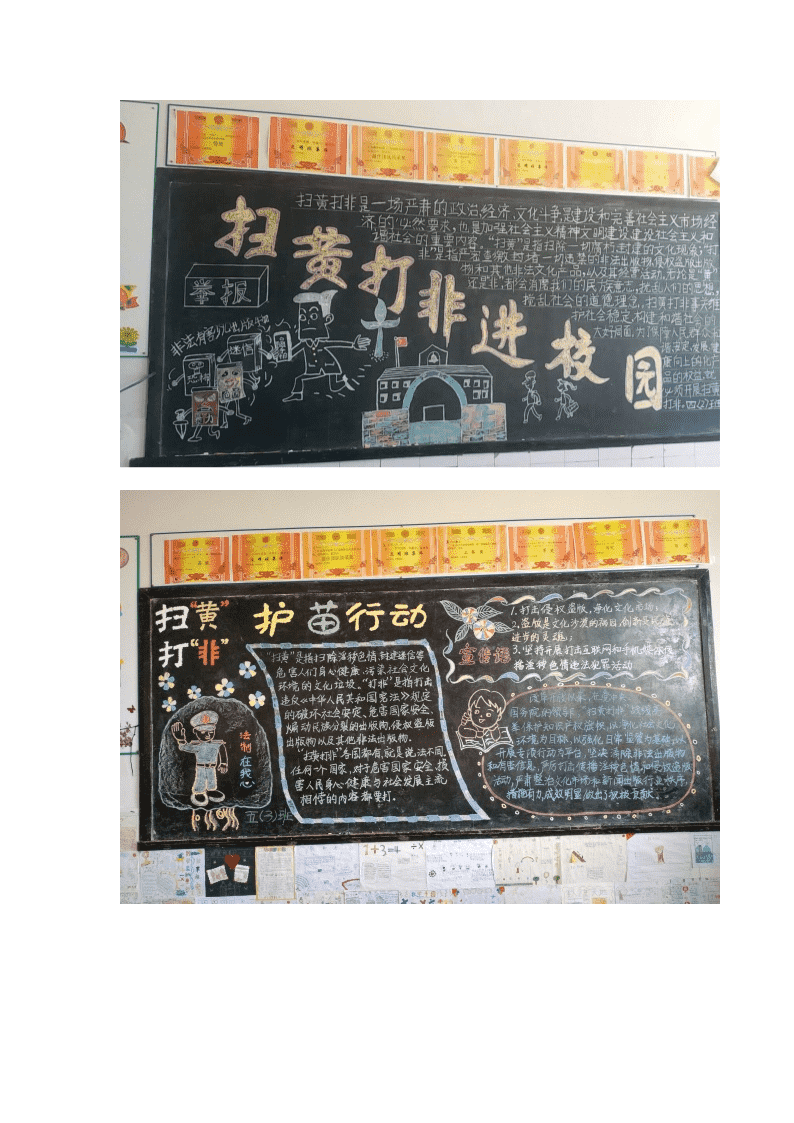 扫黄打非是一场严肃的政治经济、文化斗争,是建设和完善社会主义市场经
济的必然要求,也是加强社会主义精神文明建设建设社会主义和
谐社会的重要内容。"扫黄"是指扫除一切腐朽封建的文化现象;"打
物和其他非法文化产品,以及其经营活动,无论是"黄"
还是非,都会消磨我们的民族意志,扰乱人们的思想,
扰乱社会的道德理念,扫黄打非事关维
护社会稳定,构建和谐社会的
必须开展扫黄
打非。四(2)班
扫黄打非进校园
举报
迷信
恐怖
扫"黄"
打"非"
护苗行动
"扫黄"是指扫除淫秽色情、封建迷信等
危害人们身心健康、污染社会文化
环境的文化垃圾。"打非"是指打击
违反《中华人民共和国宪法》规定
的破坏社会安定、危害国家安全、
煽动民族分裂的出版物,侵权盗版
出版物以及其他非法出版物。
"扫黄打非"各国都有,就是说法不同,
任何一个国家,对于危害国家安全、损
害人民身心健康与社会发展主流
相悖的内容都要打。
法制在我心
五(3)班
宣传语
1.打击侵权盗版,净化文化市场;
2.盗版是文化沙漠的祸因,创新是
进步的灵魂;
3.坚持开展打击互联网和手机媒体传
播淫秽色情违法犯罪活动
环境为目标,以强化日常监管为基础,以
开展专项行动为平台,坚决清除非法出版物
和有害信息,严厉打击传播淫秽色情和侵权盗版
活动,严肃整治文化市场和新闻出版行业秩序,
措施有力,成效明显,做出了积极贡献。